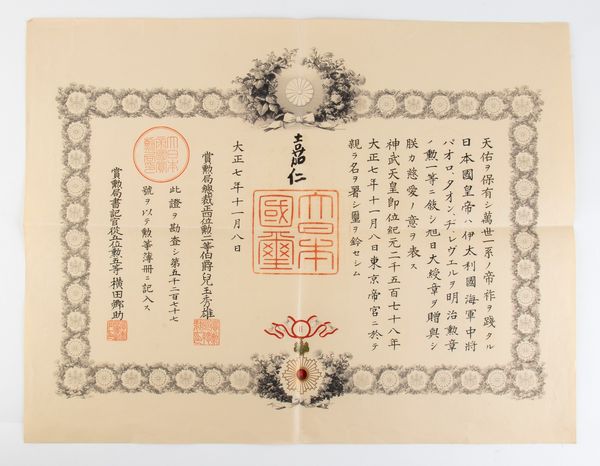 天佑ヲ保有シ萬世一系ノ帝祚ヲ踐タル
日本國皇帝ハ伊太利國海軍中將
パオロ、タオン、ヂ、レヴェルヲ明治勲章
ノ勲一等ニ敍シ旭日大綬章ヲ贈與シ
朕カ慈愛ノ意ヲ表ス
神武天皇即位紀元二千五百七十八年
大正七年十一月八日東京帝宮ニ於テ
親ラ名ヲ署シ璽ヲ鈐セシム
嘉仁
大日本國璽
大正七年十一月八日
賞勲局總裁正四位勲二等伯爵兒玉秀雄
此證ヲ勘査シ第五千二百七十七
號ヲ以テ勲等簿冊ニ記入ス
賞勲局書記官從五位勲五等横田郷助